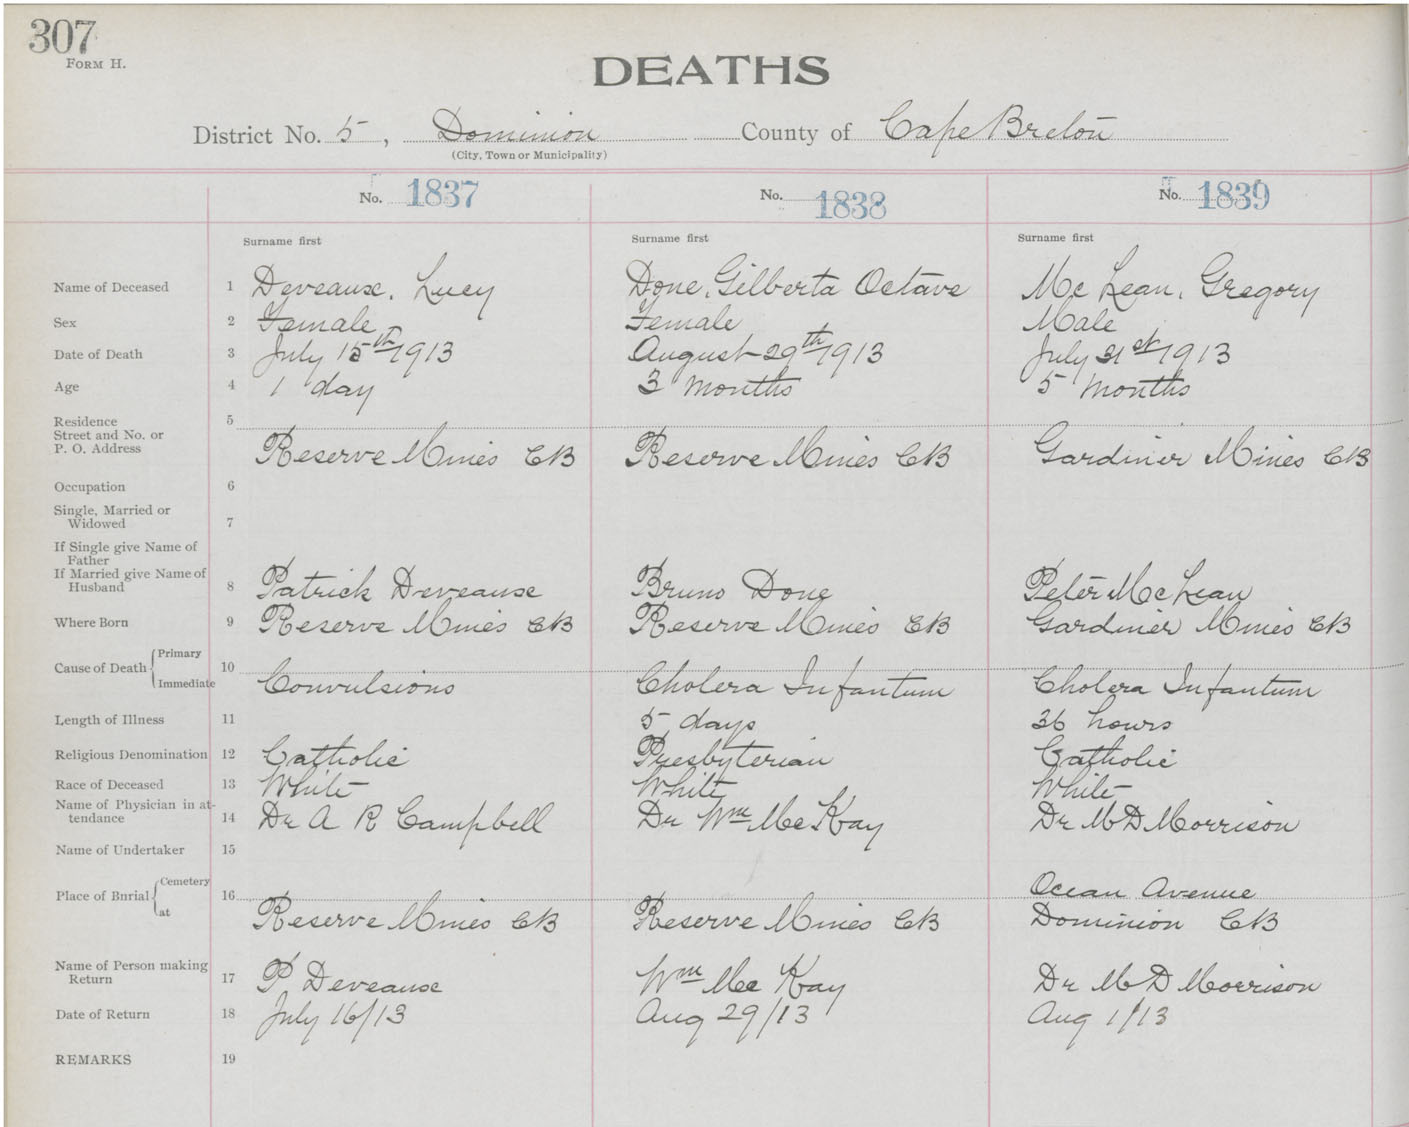 307
FORM H.
DEATHS
District No. 5, Dominion County of Cape Breton
(City, Town or Municipality)
No. 1837 No. 1838 No. 1839
Surname first Surname first Surname first
Name of Deceased 1 Deveause, Lucy Done, Gilberta Octave Mc Lean, Gregory
Sex 2 Female Female Male
Date of Death 3 July 15th 1913 August 29th 1913 July 31st 1913
Age 4 1 day 3 months 5 months
Residence 5
Street and No. or
P. O. Address Reserve Mines CB Reserve Mines CB Gardiner Mines CB
Occupation 6
Single, Married or
Widowed 7
If Single give Name of
Father
If Married give Name of
Husband 8 Patrick Deveause Bruno Done Peter Mc Lean
Where Born 9 Reserve Mines CB Reserve Mines CB Gardiner Mines CB
Primary
Cause of Death 10
Immediate Convulsions Cholera Infantum Cholera Infantum
Length of Illness 11 5 days 36 hours
Religious Denomination 12 Catholic Presbyterian Catholic
Race of Deceased 13 White White White
Name of Physician in at-
tendance 14 Dr A R Campbell Dr Wm McKay Dr M D Morrison
Name of Undertaker 15
Cemetery Ocean Avenue
Place of Bnrial 16
at Reserve Mines CB Reserve Mines CB Dominion CB
Name of Person making
Return 17 P Deveause Wm Mc Kay Dr M D Morrison
Date of Return 18 July 16/13 Aug 29/13 Aug 1/13
REMARKS 19